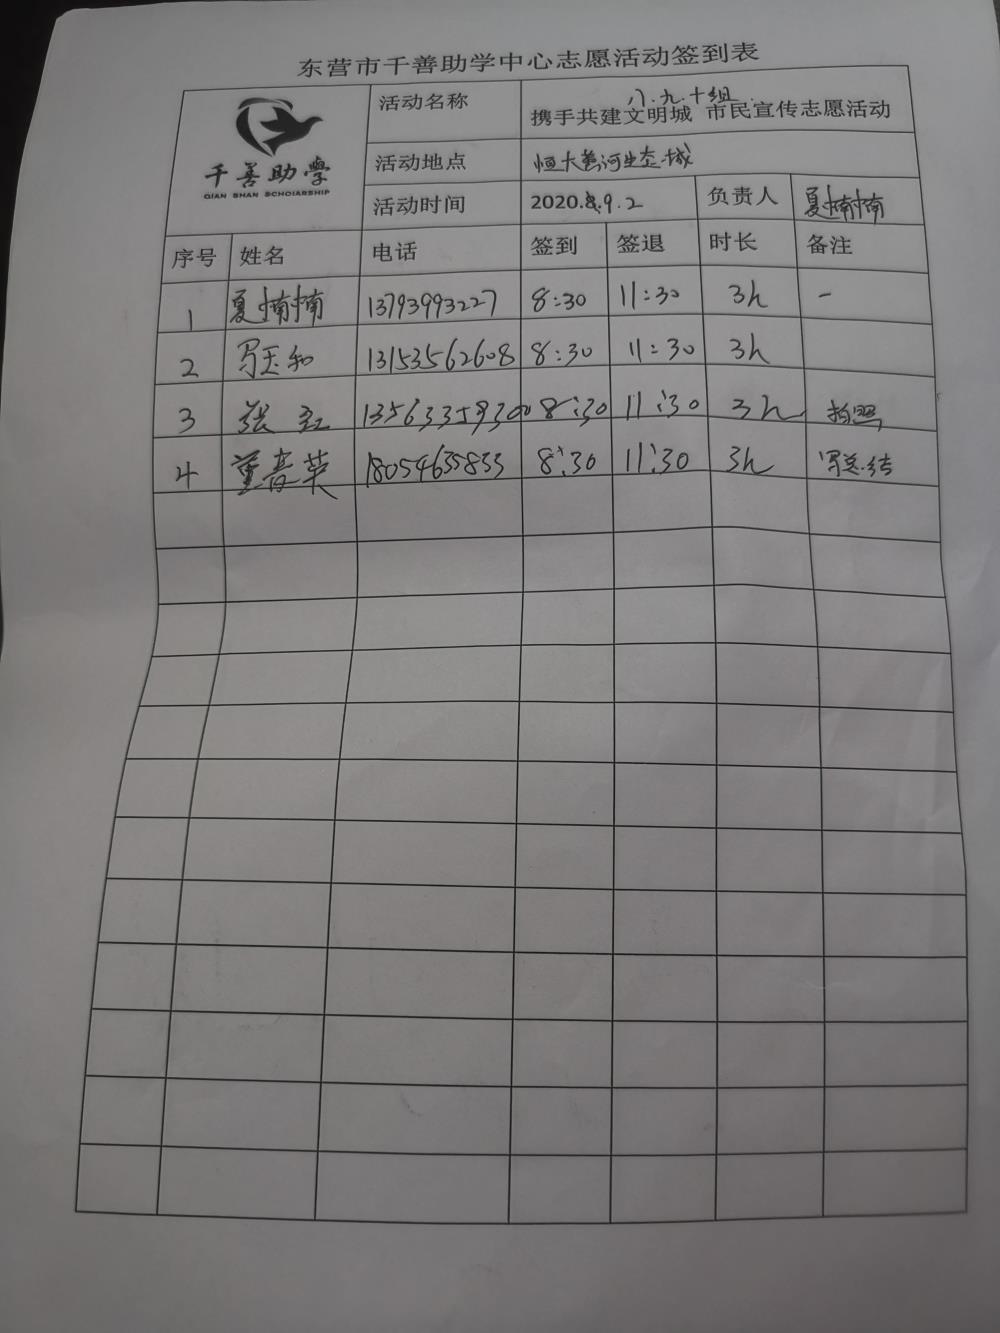 东营市千善助学中心志愿活动签到表
千善助学
QIAN SHAN SCHOLARSHIP
活动名称 八.九.十组
携手共建文明城 市民宣传志愿活动
活动地点 恒大黄河生态城
活动时间 2020.8.9.2 负责人 夏楠楠
序号 姓名 电话 签到 签退 时长 备注
1 夏楠楠 13793993227 8:30 11:30 3h -
2 玉和 13153562608 8:30 11:30 3h
3 张红 8:30 11:30 3h 拍照
4 董春英 18054635833 8:30 11:30 3h 写总结